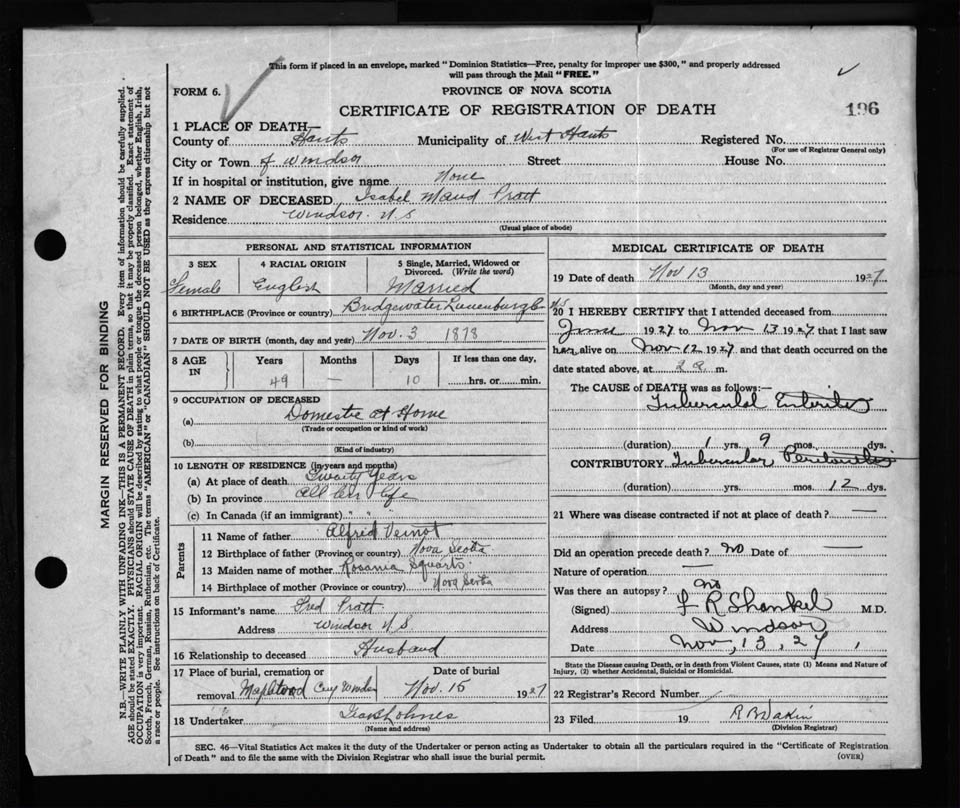 This form if placed in an envelope, marked "Dominion Statistics—Free, penalty for improper use $300," and properly addressed
will pass through the Mail "FREE."
FORM 6.
PROVINCE OF NOVA SCOTIA
CERTIFICATE OF REGISTRATION OF DEATH
196
1 PLACE OF DEATH—
County of Hants Municipality of West Hants Registered No.
(For use of Registrar General only)
City or Town of Windsor Street House No.
If in hospital or institution, give name None
2 NAME OF DECEASED Isabel Maud Pratt
Residence Windsor N S
(Usual place of abode)
PERSONAL AND STATISTICAL INFORMATION
3 SEX 4 RACIAL ORIGIN 5 Single, Married, Widowed or
Divorced. (Write the word)
Female English Married
6 BIRTHPLACE (Province or country) Bridgewater Lunenburg Co N.S
7 DATE OF BIRTH (month, day and year) Nov. 3 1878
8 AGE IN Years Months Days If less than one day,
49 — 10 hrs. or min.
9 OCCUPATION OF DECEASED
(a) Domestic at Home
(Trade or occupation or kind of work)
(b)
(Kind of industry)
10 LENGTH OF RESIDENCE (in years and months)
(a) At place of death Twenty Years
(b) In province All her life
(c) In Canada (if an immigrant) " "
Parents
11 Name of father Alfred Veinot
12 Birthplace of father (Province or country) Nova Scotia
13 Maiden name of mother Rosanna Squarts
14 Birthplace of mother (Province or country) Nova Scotia
15 Informant's name Fred Pratt
Address Windsor N S
16 Relationship to deceased Husband
17 Place of burial, cremation or Date of burial
removal Maplewood Cey Windsor Nov. 15 1927
18 Undertaker
(Name and address)
MEDICAL CERTIFICATE OF DEATH
19 Date of death Nov 13 1927
(Month, day and year)
20 I HEREBY CERTIFY that I attended deceased from
June 1927 to Nov 13 1927 that I last saw
her alive on Nov 12 1927 and that death occurred on the
date stated above, at 2 a m.
The CAUSE OF DEATH was as follows:—
Tubercular Enteritis
(duration) 1 yrs. 9 mos. dys.
CONTRIBUTORY Tubercular Peritonitis
(duration) yrs. mos. 12 dys.
21 Where was disease contracted if not at place of death? —
Did an operation precede death? no Date of —
Nature of operation —
Was there an autopsy? no
(Signed) F R Shankel M.D.
Address Windsor
Date Nov, 13, 27,
State the Disease causing Death, or in death from Violent Causes, state (1) Means and Nature of
Injury, (2) whether Accidental, Suicidal or Homicidal.
22 Registrar's Record Number
23 Filed 19 R B Dakin
(Division Registrar)
SEC. 46—Vital Statistics Act makes it the duty of the Undertaker or person acting as Undertaker to obtain all the particulars required in the "Certificate of Registration
of Death" and to file the same with the Division Registrar who shall issue the burial permit.
(OVER)
MARGIN RESERVED FOR BINDING
N.B.—WRITE PLAINLY WITH UNFADING INK—THIS IS A PERMANENT RECORD. Every item of information should be carefully supplied.
AGE should be stated EXACTLY. PHYSICIANS should STATE CAUSE OF DEATH in plain terms, so that it may be properly classified. Exact statement of
OCCUPATION is very important. RACIAL ORIGIN will be described by stating to what people or tongue the deceased person belonged, whether English, Irish,
Scotch, French, German, Russian, Ruthenian, etc. The terms "AMERICAN" or "CANADIAN" SHOULD NOT BE USED as they express citizenship but not
a race or people. See instructions on back of Certificate.